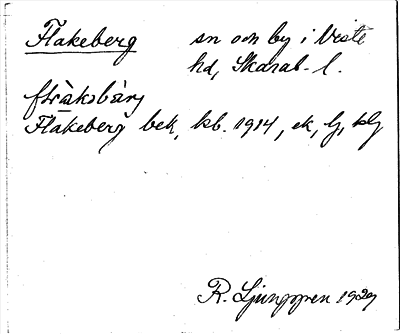 Flakeberg sn och by i Viste
hd, Skarab. l.
Flakeberg bek, kb. 1914, ek, lj, klj
R. Ljunggren 1929